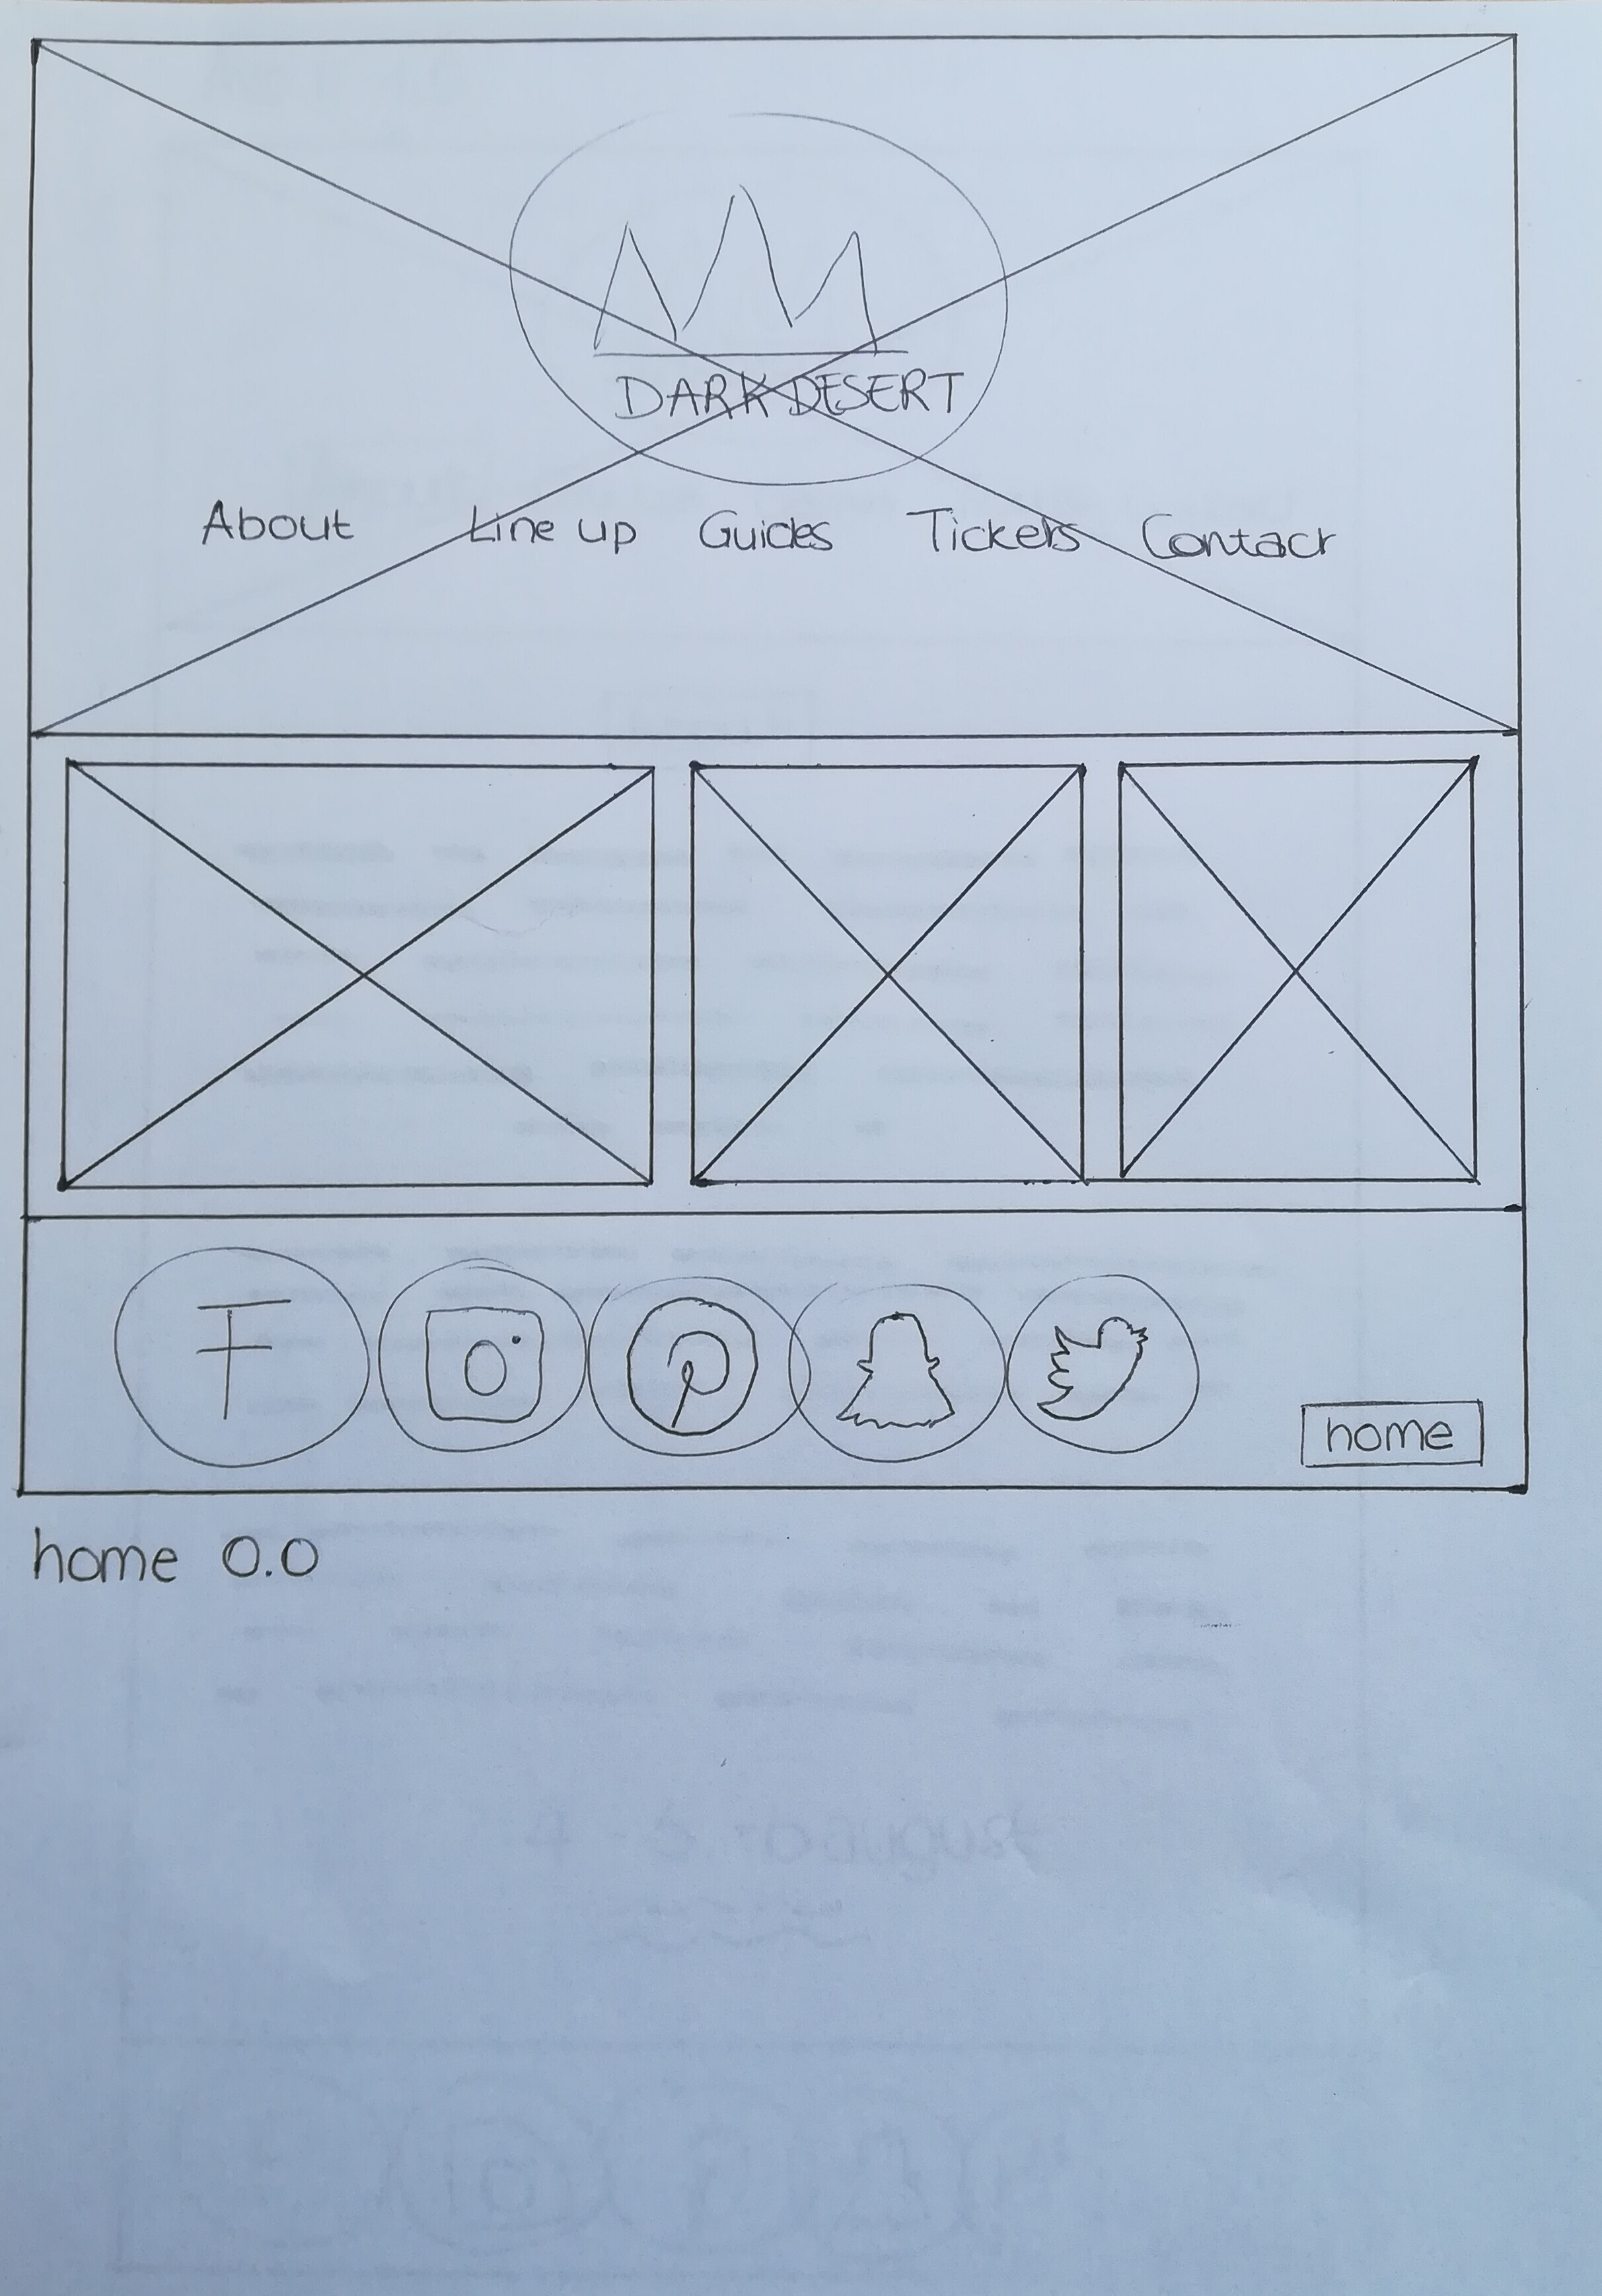 DARK DESERT
About Line up Guides Tickets Contact
home
home 0.0